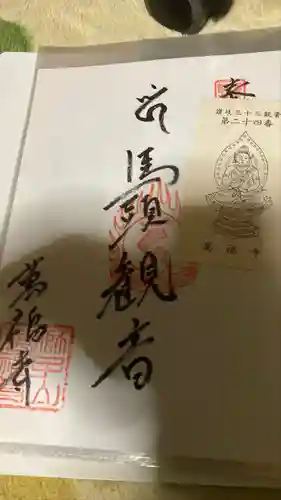 奉
馬頭観音
萬福寺
讃岐三十三観音
第二十四番
萬福寺